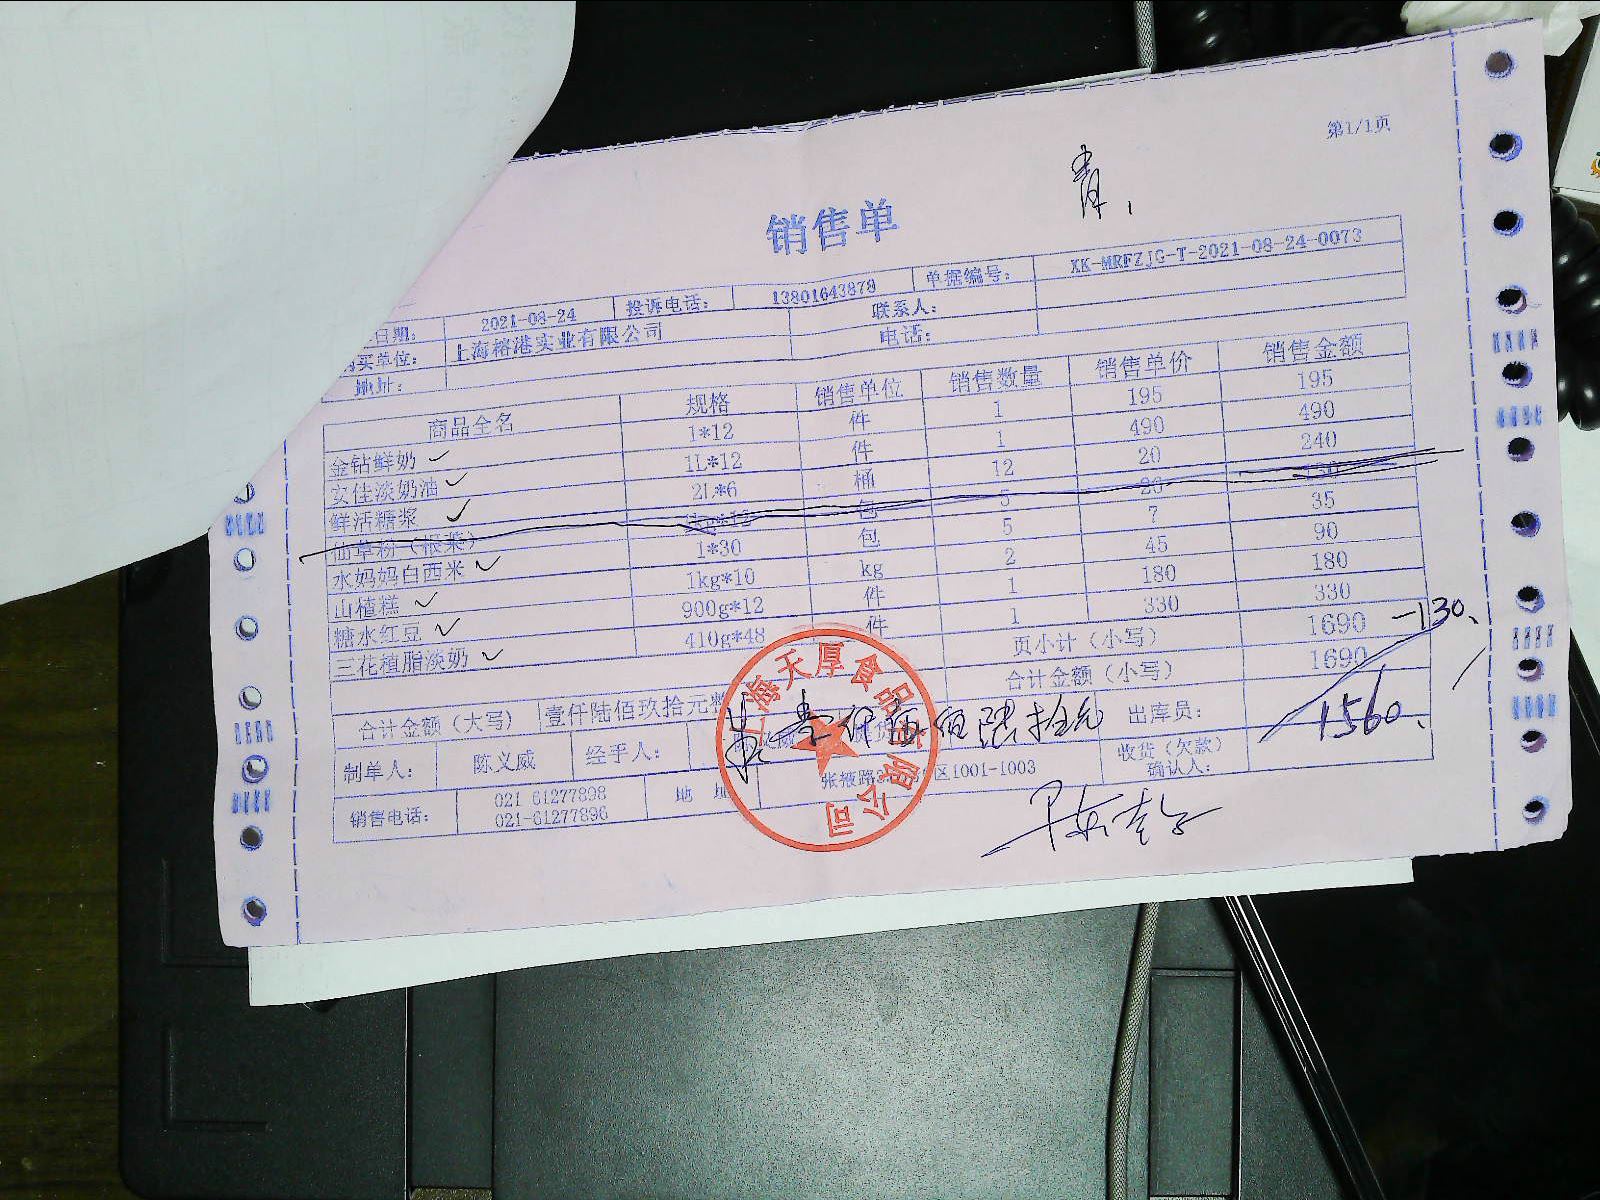 第1/1页
青
销售单
日期: 2021-08-24 投诉电话: 13801643878 单据编号: XK-MRFZJG-T-2021-08-24-0073
买单位: 上海榕港实业有限公司 联系人:
地址: 电话:
商品全名 规格 销售单位 销售数量 销售单价 销售金额
金钻鲜奶 1*12 件 1 195 195
安佳淡奶油 1L*12 件 1 490 490
鲜活糖浆 2L*6 桶 12 20 240
仙草粉 1kg*12 包 5 26 130
水妈妈白西米 1*30 包 5 7 35
山楂糕 1kg*10 kg 2 45 90
糖水红豆 900g*12 件 1 180 180
三花植脂淡奶 410g*48 件 1 330 330
页小计（小写） 1690 -130
合计金额（小写） 1690
合计金额（大写） 壹仟陆佰玖拾元整
壹仟伍佰陆拾元
1560
制单人: 陈义威 经手人: 出库员: 收货（欠款）确认人:
销售电话: 021 61277898
021-61277896
地 址 张掖路 区1001-1003
上海天厚食品有限公司